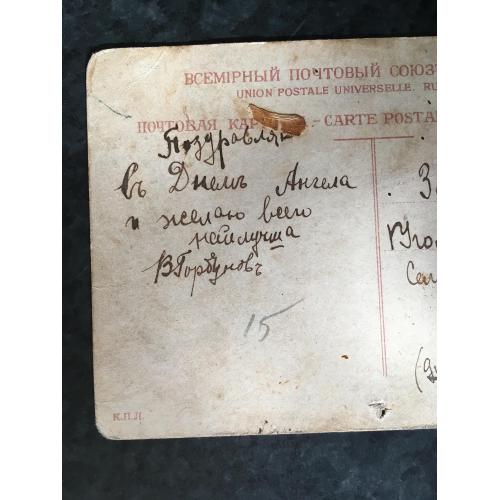 ВСЕМІРНЫЙ ПОЧТОВЫЙ СОЮЗ
UNION POSTALE UNIVERSELLE. RU
ПОЧТОВАЯ КАР -CARTE POSTA
Поздравляю
въ Днемъ Ангела
и желаю всего
найлучша
ВГорбуновъ
15
К.П.Л.